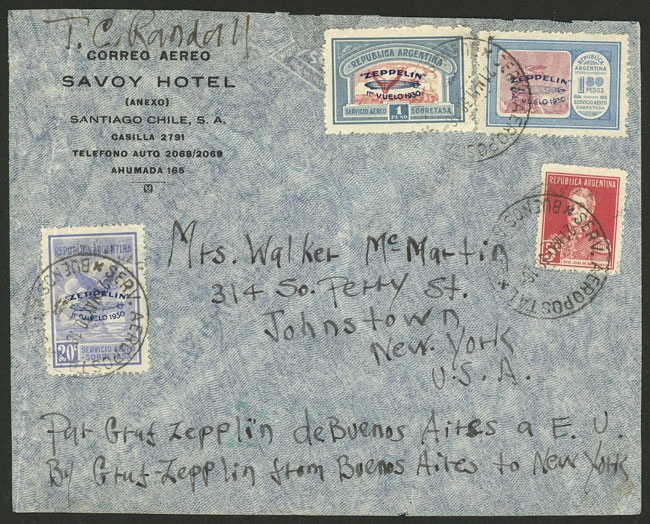 T. C. Randall
CORREO AEREO
SAVOY HOTEL
(ANEXO)
SANTIAGO CHILE, S. A.
CASILLA 2791
TELEFONO AUTO 2068/2069
AHUMADA 165
REPUBLICA ARGENTINA
"ZEPPELIN"
1er VUELO 1930
SERVICIO AEREO 1 SOBRETASA
PESO
REPUBLICA
ARGENTINA
"ZEPPELIN"
1er VUELO 1930
1.80
PESOS
SERVICIO AEREO
SOBRETASA
REPUBLICA ARGENTINA
5
SERV. AEROPOSTAL
BUENOS
REPUBLICA ARGENTINA
"ZEPPELIN"
1er VUELO 1930
20c
SERVICIO
SOBRETASA
SERV. AEROPOSTAL
BUENOS
Mrs. Walker McMartin
314 So. Perry St.
Johnstown
New York
U.S.A.
Par Graf Zepplin de Buenos Aires a E. U.
By Graf-Zepplin from Buenos Aires to New York